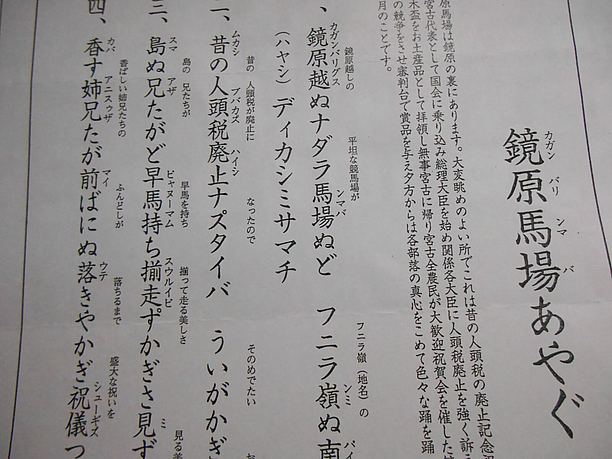 カガン バリ ンマ バ
鏡原馬場あやぐ
原馬場は鏡原の裏にあります。大変眺めのよい所でこれは昔の人頭税の廃止記念
宮古代表として国会に乗り込み総理大臣を始め関係各大臣に人頭税廃止を強く訴
木盃をお土産品として拝領し無事宮古に帰り宮古全農民が大歓迎祝賀会を催した
の競争をさせ審判台で賞品を与え夕方からは各部落の真心をこめて色々な踊を踊
月のことです。
鏡原越しの 平坦な競馬場が フニラ嶺(地名)の
カガンバリグス ンマバ ンミ パイ
、鏡原越ぬナダラ馬場ぬど フニラ嶺ぬ南
(ハヤシ)ディカシミサマチ
昔の 人頭税が廃止に なったので そのめでたい
ムカシ ブバカズ ハイシ
二、昔の人頭税廃止ナズタイバ ういがかぎ
島の 兄たちが 早馬を持ち 揃って走る美しさ 見る美
スマ アザ ピャズーマム スウルイピ ミ
三、島ぬ兄たがど早馬持ち揃走ずかぎさ見ず
香ばしい姉兄たちの ふんどしが 落ちるまで 盛大な祝いを
カバ アニスゥザ マイ ウテ シューギズ
四、香す姉兄たが前ばにぬ落きやかぎ祝儀つ